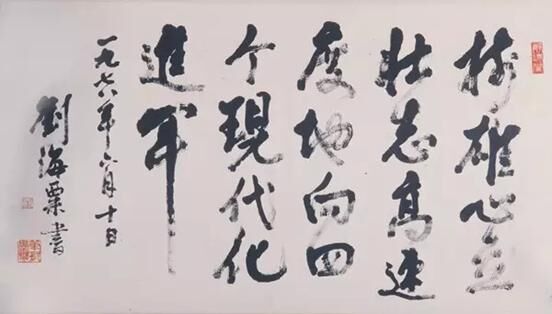 樹雄心立
壮志高速
度地向四
个現代化
進軍
一九七八年六月十日
劉海粟書